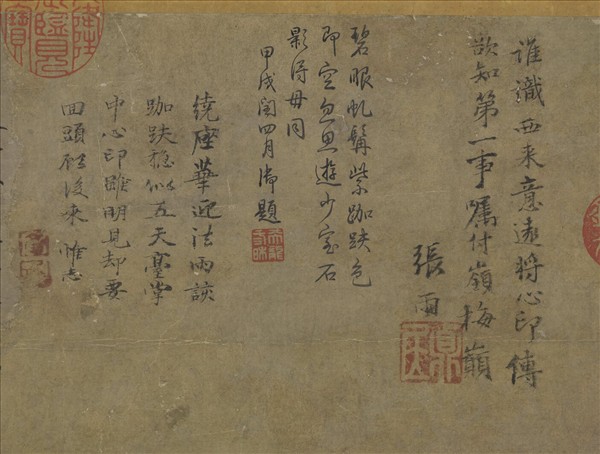 誰識西来意遠將心印傳
欲知第一事囑付嶺梅巔
張雨
碧眼虬髯紫跏趺色
即空忽思遊少室石
影得毋同
甲戌閏四月御題
繞座華迎法雨談
跏趺穩似五天臺掌
中心印雖明見却要
回頭啟後來 惟志